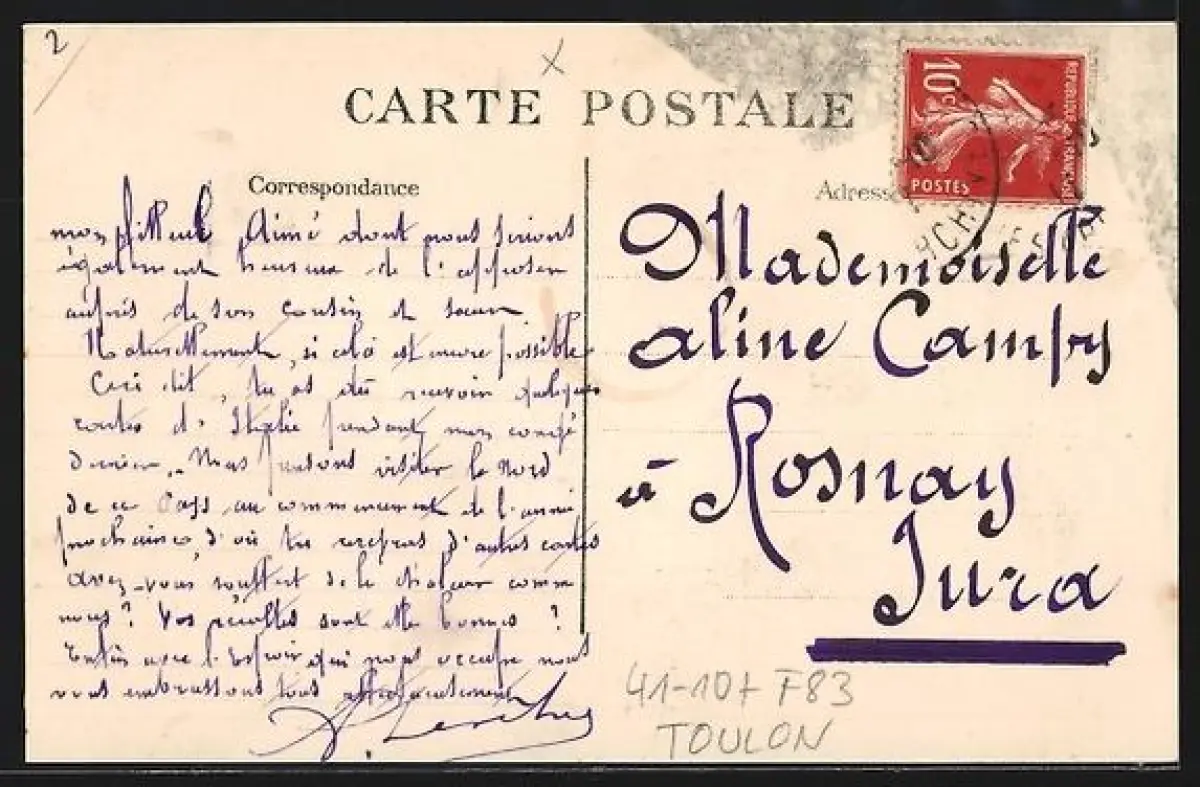 2
CARTE POSTALE
Correspondance
Adresse
10c
POSTES
REPUBLIQUE FRANÇAISE
mon filleul Aimé dont nous serions
également heureux de l'apposer
auprès de son cousin et sœur
Naturellement, si cela est encore possible
Ceci dit, tu as dû recevoir quelques
cartes d'Italie pendant mon congé
dernier. Nous pensons visiter le Nord
de ce Pays au commencement de l'année
prochaine, d'où tu recevras d'autres cartes
avez-vous souffert de la chaleur comme
nous? Vos récoltes sont elles bonnes?
Enfin avec l'Espoir qui nous occupe nous
vous embrassons tous affectueusement
Mademoiselle
Aline Campy
à Rosnay
Jura
41-107 F83
TOULON